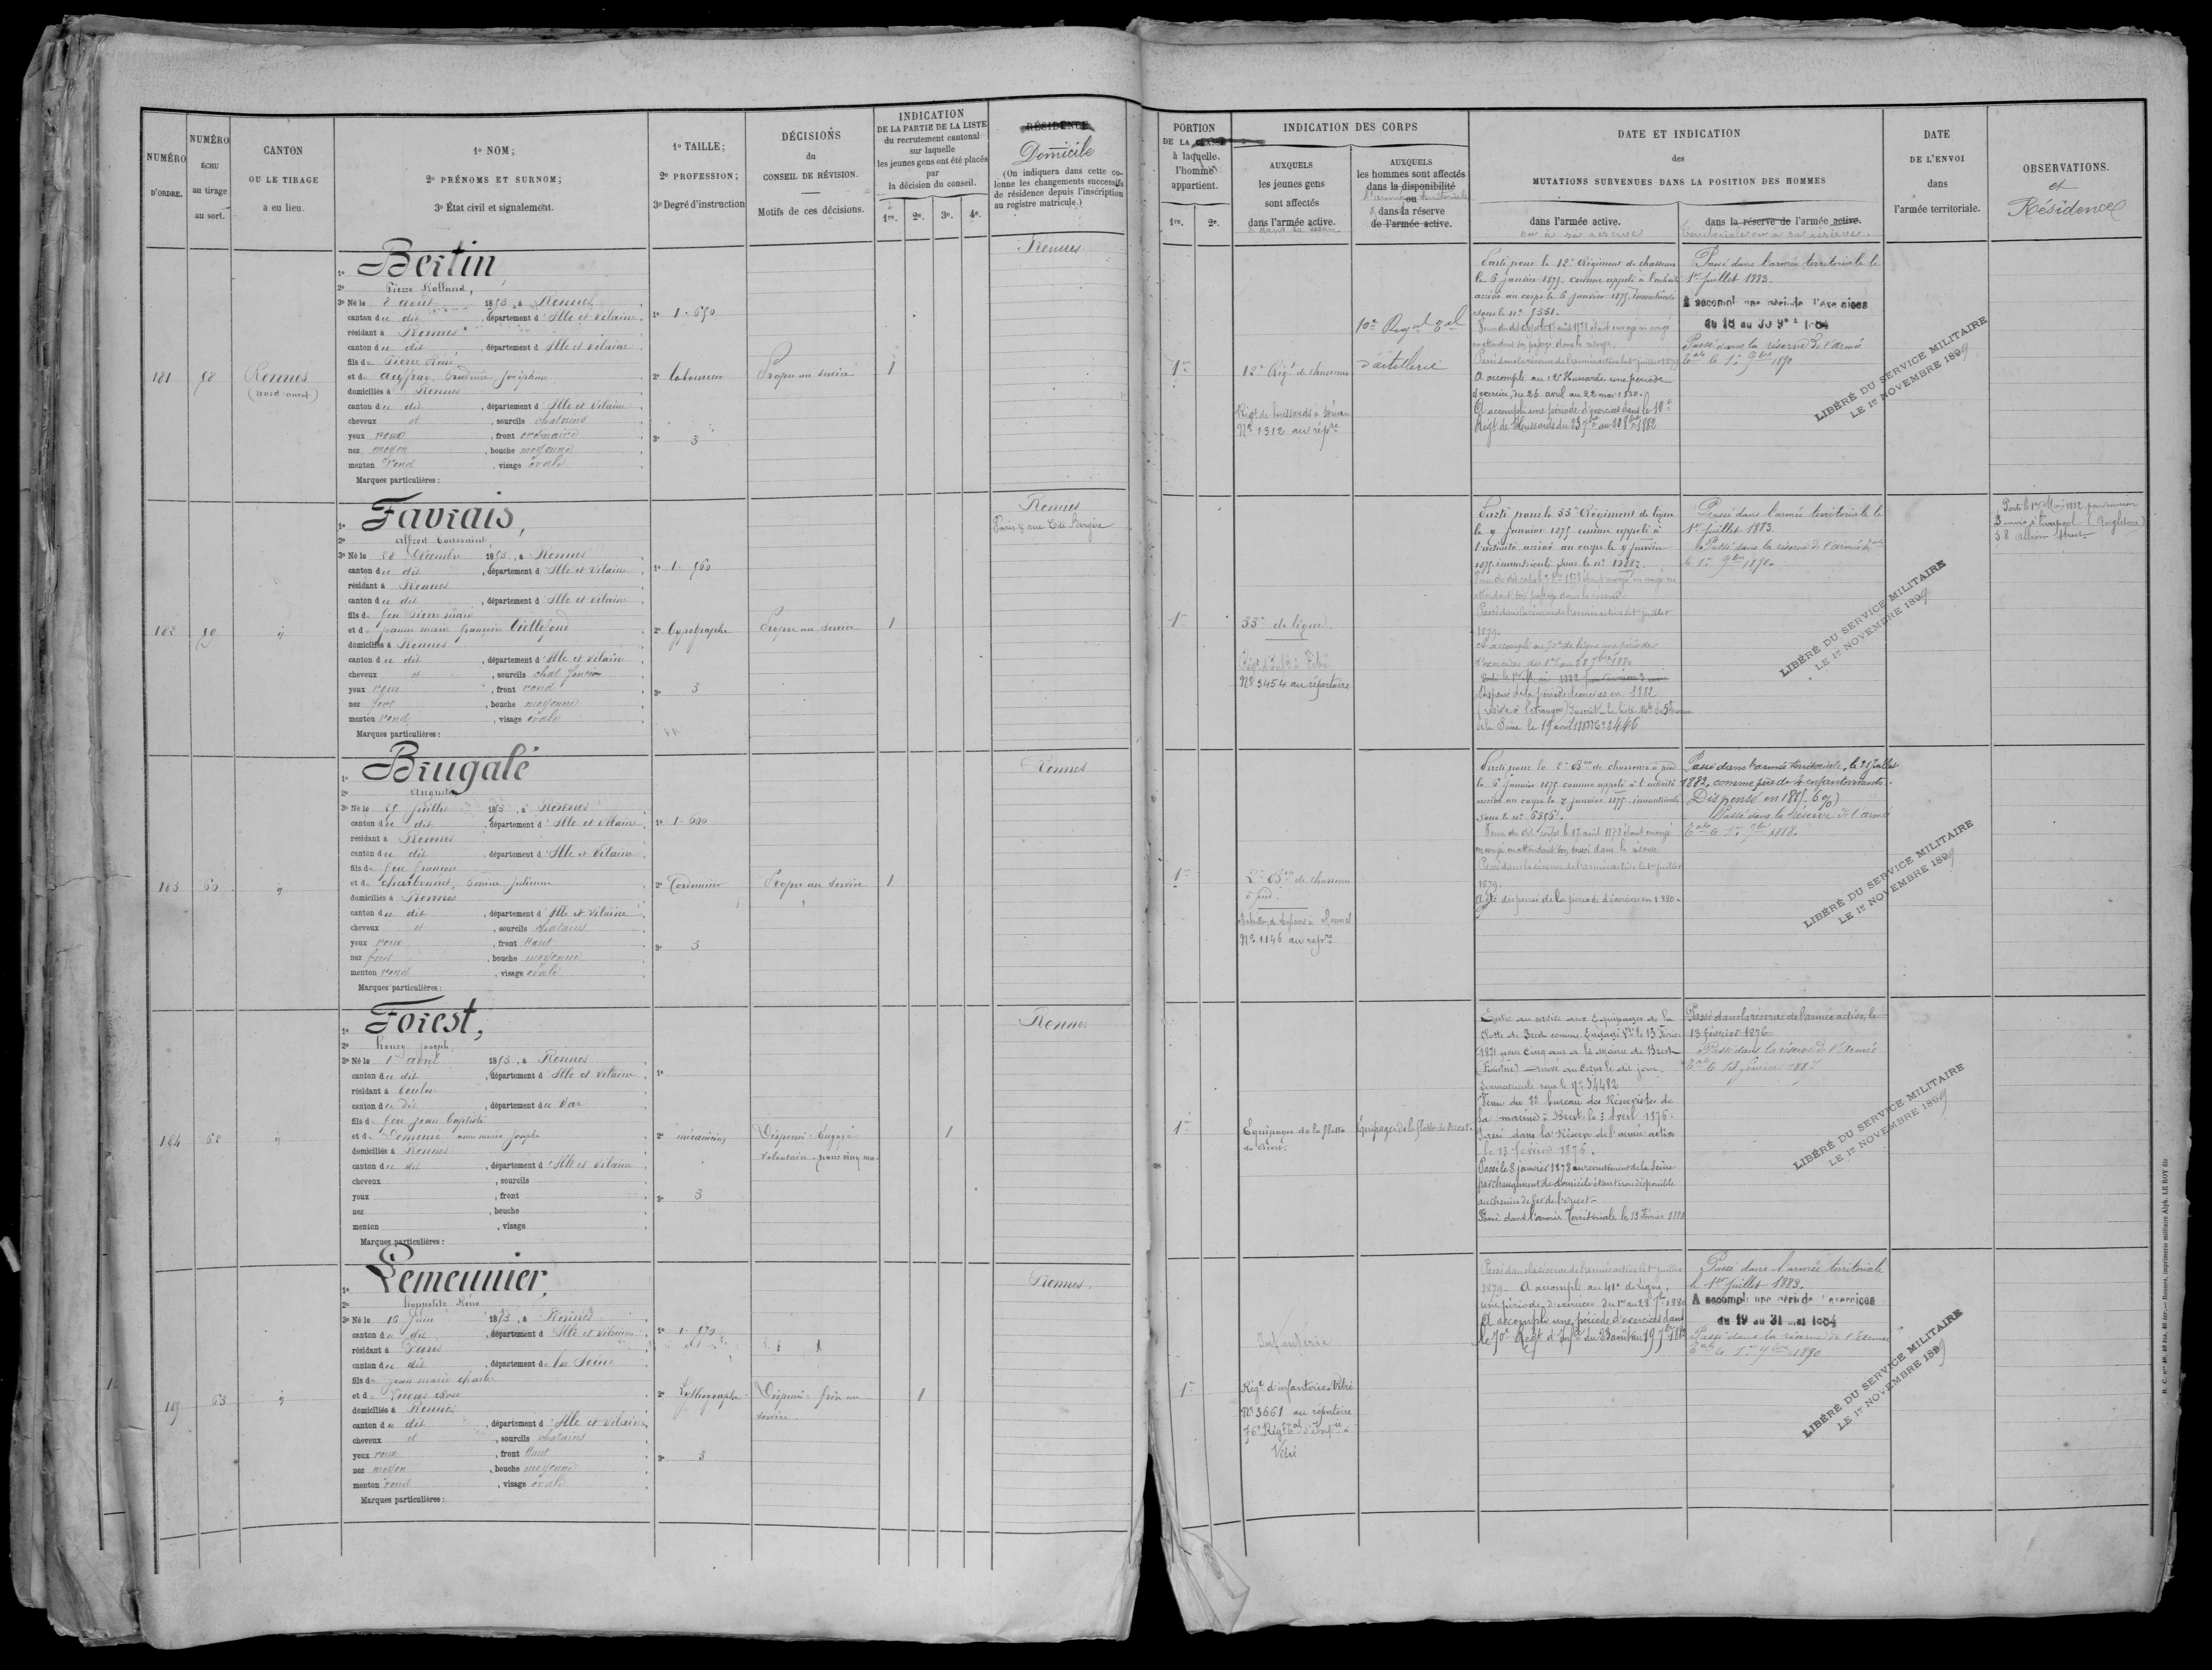 NUMÉRO
D'ORDRE.
NUMÉRO
ÉCHU
au tirage
au sort.
CANTON
OU LE TIRAGE
a eu lieu.
1º NOM;
2º PRÉNOMS ET SURNOM;
3º État civil et signalement.
1º TAILLE;
2º PROFESSION;
3º Degré d'instruction
DÉCISIONS
du
CONSEIL DE RÉVISION.
Motifs de ces décisions.
INDICATION
DE LA PARTIE DE LA LISTE
du recrutement cantonal
sur laquelle
les jeunes gens ont été placés
par
la décision du conseil.
1re. 2e. 3e. 4e.
RÉSIDENCE
Domicile
(On indiquera dans cette co-
lonne les changements successifs
de résidence depuis l'inscription
au registre matricule.)
PORTION
DE LA CLASSE
à laquelle
l'homme
appartient.
1re. 2e.
INDICATION DES CORPS
AUXQUELS
les jeunes gens
sont affectés
dans l'armée active.
AUXQUELS
les hommes sont affectés
dans la disponibilité
ou
dans la réserve
de l'armée active.
DATE ET INDICATION
des
MUTATIONS SURVENUES DANS LA POSITION DES HOMMES
dans l'armée active.
ou à sa réserve
dans la réserve de l'armée active.
territoriale ou à sa réserve.
DATE
DE L'ENVOI
dans
l'armée territoriale.
OBSERVATIONS.
et
Résidences
181
58
Rennes
(nord-ouest)
1º Bertin
2º Pierre Rolland,
3º Né le 8 août 1853, à Rennes
canton du dit, département d'Ille et Vilaine
résidant à Rennes
canton du dit, département d'Ille et Vilaine
fils de Pierre René
et d
domiciliés à Rennes
canton du dit, département d'Ille et Vilaine
cheveux et, sourcils chatains
yeux roux, front ordinaire
nez moyen, bouche moyenne
menton rond, visage ovale
Marques particulières:
1º 1.650
2º Laboureur
3º 3
Propre au service
1
Rennes
1re
12e Régt de chasseurs
Régt de hussards à Dinan
Nº 1312 au répre
10e Régt Tal
d'artillerie
Parti pour le 12e Régiment de chasseurs
le 6 janvier 1875 comme appelé à l'activité
arrivé au corps le 6 janvier 1875, immatriculé
sous le nº
Passé dans la réserve de l'armée active le 1er juillet 1879
A accompli au 12e Hussards une période
d'exercices du 26 avril au 22 mai 1880.
A accompli une période d'exercices dans le 10e
Régt de Hussards du 23 7bre au 20 8bre 1882
Passé dans l'armée territoriale le
1er juillet 1883.
A accompli une période d'exercices
du 18 au 30 9bre 1884
Passé dans la réserve de l'armée
Tale le 1er 9bre 1890
LIBÉRÉ DU SERVICE MILITAIRE
LE 1er NOVEMBRE 1899
182
59
1º Favrais,
2º Alfred Toussaint
3º Né le 28 Décembre 1853, à Rennes
canton du dit, département d'Ille et Vilaine
résidant à Rennes
canton du dit, département d'Ille et Vilaine
fils de feu Pierre Marie
et de Jeanne Marie Françoise
domiciliés à Rennes
canton du dit, département d'Ille et Vilaine
cheveux et, sourcils chat. foncés
yeux roux, front rond
nez fort, bouche moyenne
menton rond, visage ovale
Marques particulières:
1º 1.560
2º Typographe
3º 3
Propre au service
1
Rennes
Paris 8 rue Cité Bergère
1re
33e de ligne.
Régt d'Infie à Vitré
Nº 3454 au répertoire
Parti pour le 33e Régiment de ligne
le 9 janvier 1875 comme appelé à
l'activité arrivé au corps le 9 janvier
1875 immatriculé sous le nº
Passé dans la réserve de l'armée active le 1er juillet
1879.
A accompli au 70e de ligne une période
d'exercices du 1er au 28 7bre 1880
Dispensé de la période d'exercices en 1882
Passé dans l'armée territoriale le
1er juillet 1883.
Passé dans la réserve de l'armée Tale
le 1er 9bre 1890.
LIBÉRÉ DU SERVICE MILITAIRE
LE 1er NOVEMBRE 1899
Parti le 1er Mai 1882 pour environ
3 mois à Liverpool (Angleterre)
38 Albion Street
183
60
1º Brugalé
2º Auguste
3º Né le 25 juillet 1853, à Rennes
canton du dit, département d'Ille et Vilaine
résidant à Rennes
canton du dit, département d'Ille et Vilaine
fils de feu François
et de Charbonnel,
domiciliés à Rennes
canton du dit, département d'Ille et Vilaine
cheveux et, sourcils chatains
yeux roux, front haut
nez fort, bouche moyenne
menton rond, visage ovale
Marques particulières:
1º 1.600
2º Cordonnier
3º 3
Propre au service
1
Rennes
1re
2e Bon de chasseurs
à pied.
Nº 1146 au répre
Parti pour le 2e Bon de chasseurs à pied
le 6 janvier 1875 comme appelé à l'activité
arrivé au corps le 7 janvier 1875, immatriculé
sous le nº
Passé dans la réserve de l'armée active le 1er juillet
1879.
A été dispensé de la période d'exercices en 1880.
Passé dans l'armée territoriale, le 21 juillet
1882, comme père de 4 enfants vivants.
Dispensé en 1885. 6%)
Passé dans la Réserve de l'armée
Tale le 1er 1888.
LIBÉRÉ DU SERVICE MILITAIRE
LE 1er NOVEMBRE 1899
184
62
1º Forest,
2º Henry Joseph
3º Né le 1er avril 1853, à Rennes
canton du dit, département d'Ille et Vilaine
résidant à Toulon
canton du dit, département du Var
fils de feu Jean Baptiste
et de anne marie josephe
domiciliés à Rennes
canton du dit, département d'Ille et Vilaine
cheveux, sourcils
yeux, front
nez, bouche
menton, visage
Marques particulières:
1º
2º mécanicien
3º 3
Dispensé. Engagé
volontaire pour cinq ans
1
Rennes
1re
Equipages de la flotte
de Brest.
Equipages de la flotte de Brest.
Entré au service aux Equipages de la
flotte de Brest comme Engagé Vre le 13 Février
1871 pour cinq ans à la Mairie de Brest
(Finistère) Arrivé au corps le dit jour.
Immatriculé sous le Nº 34482
Venu du 22 bureau des Réservistes de
la marine à Brest, le 3 Avril 1876.
Passé dans la Réserve de l'armée active
le 13 février 1876.
Passé le 8 janvier 1878 au recrutement de la Seine
par changement de domicile étant non disponible
au chemin de fer de l'ouest.
Passé dans l'armée Territoriale le 13 Février 1880
Passé dans la réserve de l'armée active, le
13 février 1876
Passé dans la réserve de l'armée
Tale le 13 février
LIBÉRÉ DU SERVICE MILITAIRE
LE 1er NOVEMBRE 1899
185
63
1º Lemeunier,
2º Hippolite Réné
3º Né le 16 Juin 1853, à Rennes
canton du dit, département d'Ille et Vilaine
résidant à Paris
canton du dit, département de la Seine
fils de Jean marie charles
et de
domiciliés à Rennes
canton du dit, département d'Ille et Vilaine
cheveux et, sourcils chatains
yeux roux, front haut
nez moyen, bouche moyenne
menton rond, visage ovale
Marques particulières:
1º 1.570
2º Lythographe
3º 3
Dispensé. frère au
service.
1
Rennes.
1re
Infanterie
Régt d'infanterie Vitré
Nº 3661 au répertoire
76e Régt Tal d'Infre à
Vitré
Passé dans la réserve de l'armée active le 1er juillet
1879. A accompli au 41e de Ligne,
une période d'exercices du 1er au 28 7bre 1880
A accompli une période d'exercices dans
le 70e Régt d'Infie du 23 août au 19 7bre 1882
Passé dans l'armée territoriale
le 1er juillet 1883.
A accompli une période d'exercices
du 19 au 31 mai 1884
Passé dans la réserve de l'armée
Tale le 1er 9bre 1890
LIBÉRÉ DU SERVICE MILITAIRE
LE 1er NOVEMBRE 1899
Rennes, imprimerie militaire Alph. LE ROY fils